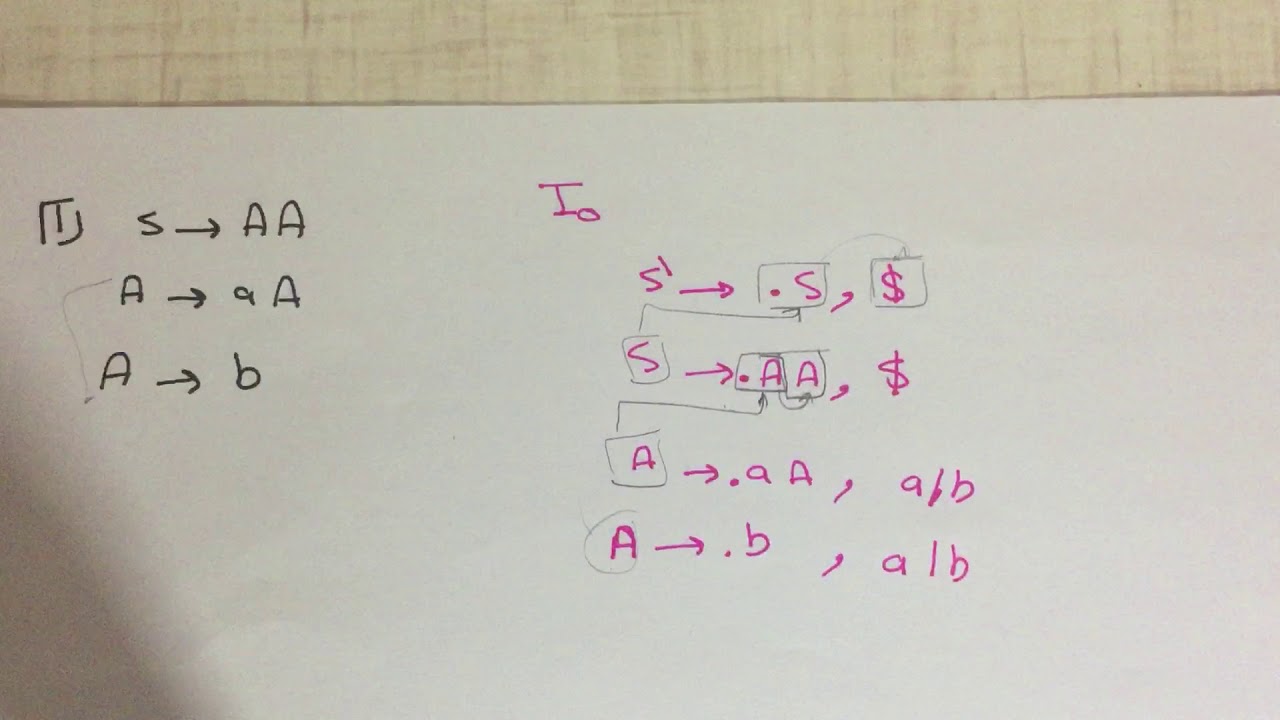 1) S → AA
A → aA
A → b
I₀
S' → .S, $
S → .AA, $
A → .aA, a/b
A → .b, a/b